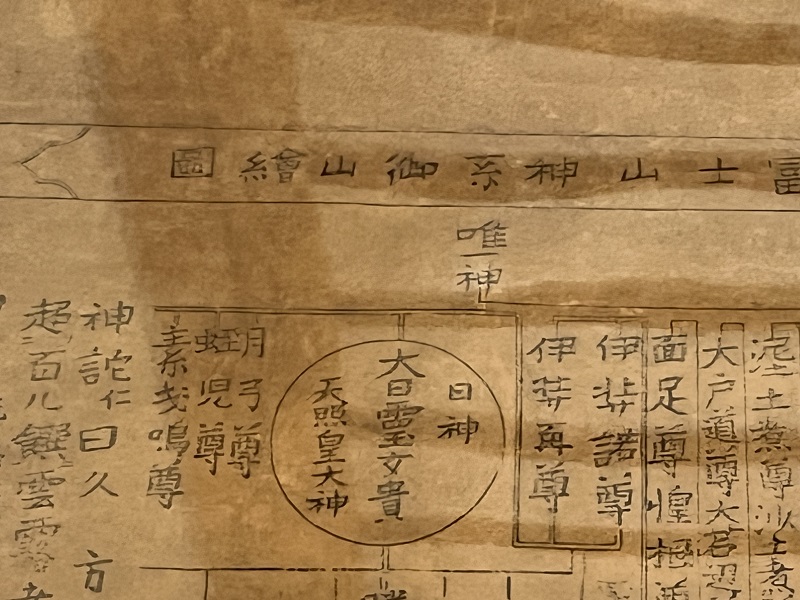 富士山神系御山繪圖
唯一神
泥土煮尊沙土煮
大戸道尊大苫辺
面足尊惶根尊
伊弉諾尊
伊弉冉尊
日神
大日孁文貴
天照皇大神
月弓尊
蛭児尊
素戔嗚尊
神詫仁曰久 方
超百八 雲露